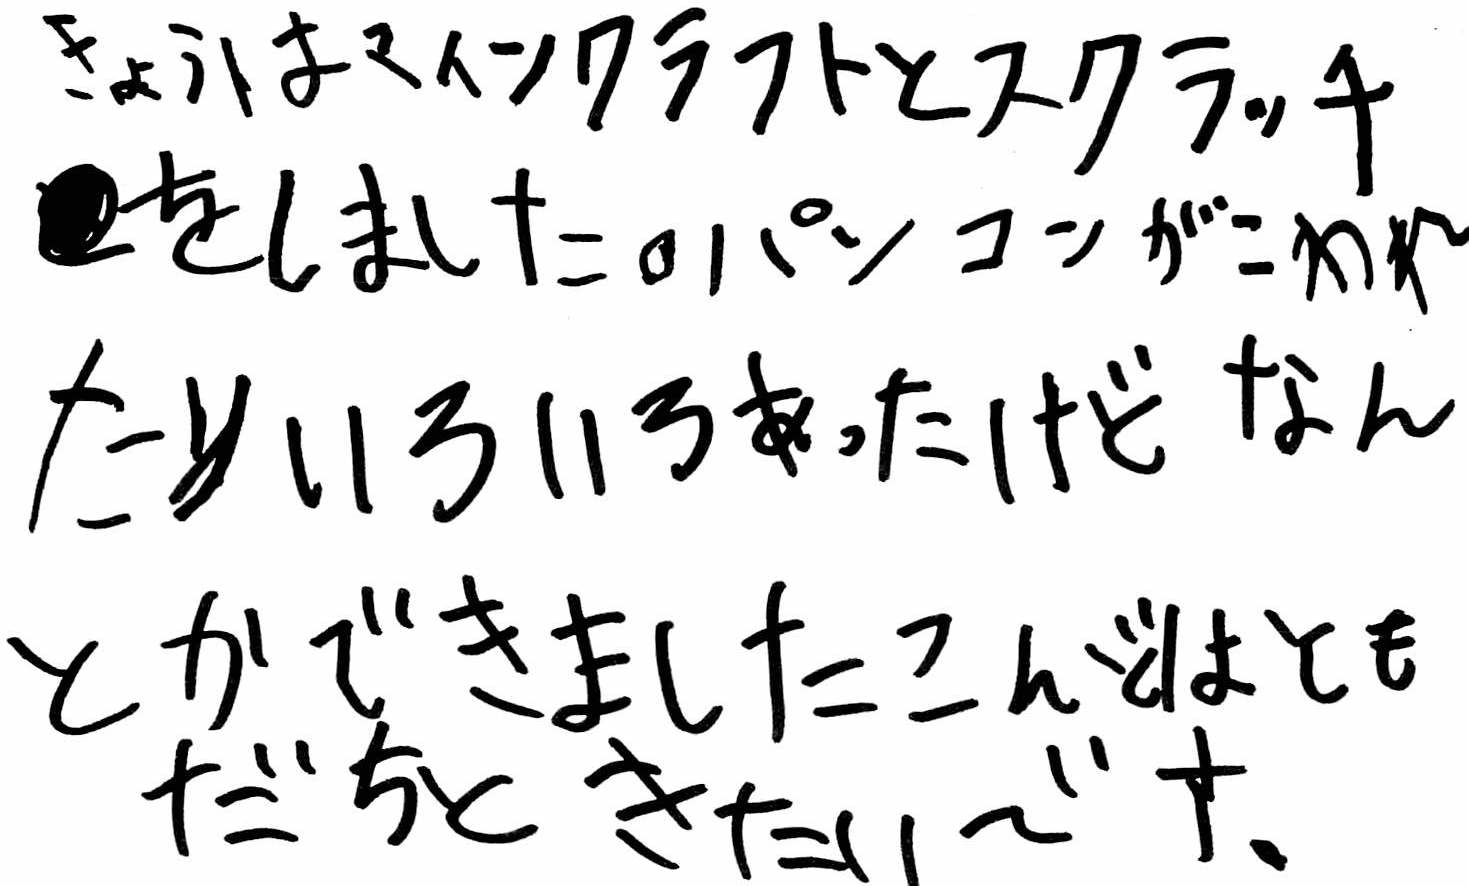 きょうはマインクラフトとスクラッチ
をしました。パソコンがこわれ
たりいろいろあったけどなん
とかできましたこんどはとも
だちときたいです、